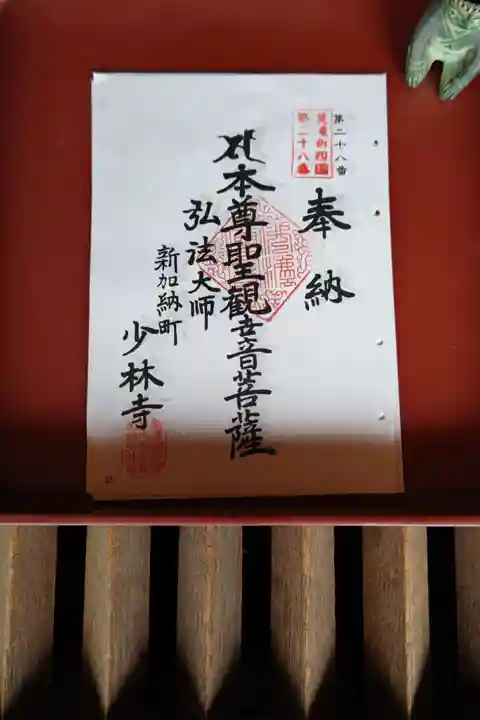 第二十八番
第二十八番
奉納
本尊聖観世音菩薩
弘法大師
新加納町
少林寺